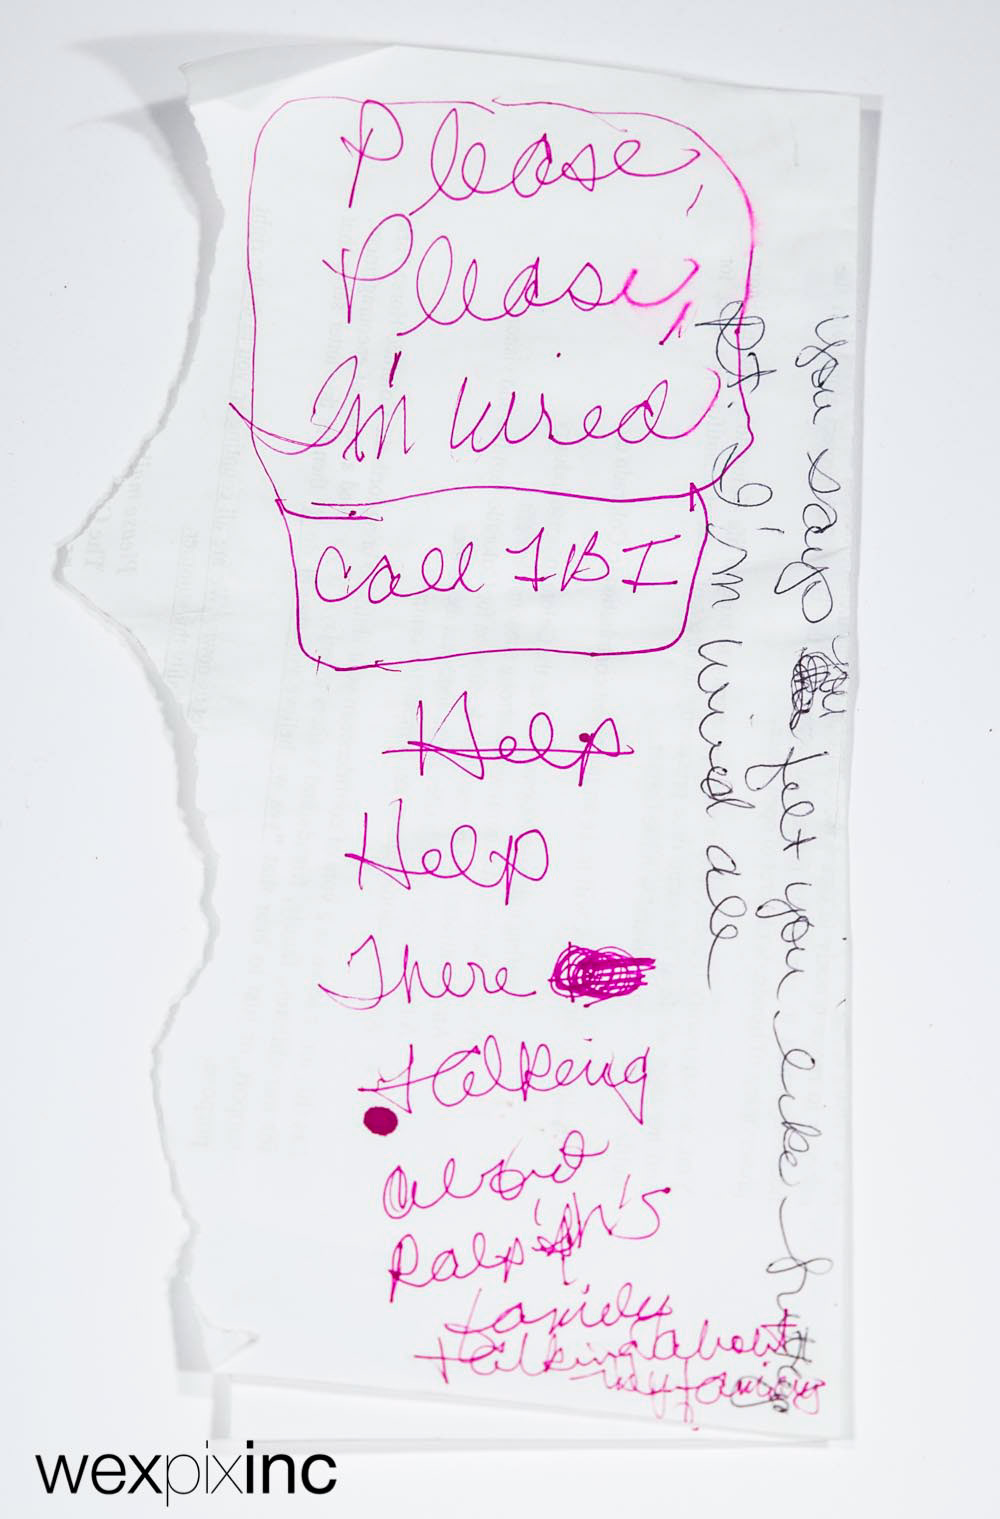 Please,
Please,
I'm wired
Call FBI
Help
Help
There
talking
about
Ralph's
family
talking about
my family
pt. I'm wired all
you say you felt you like
wexpixinc